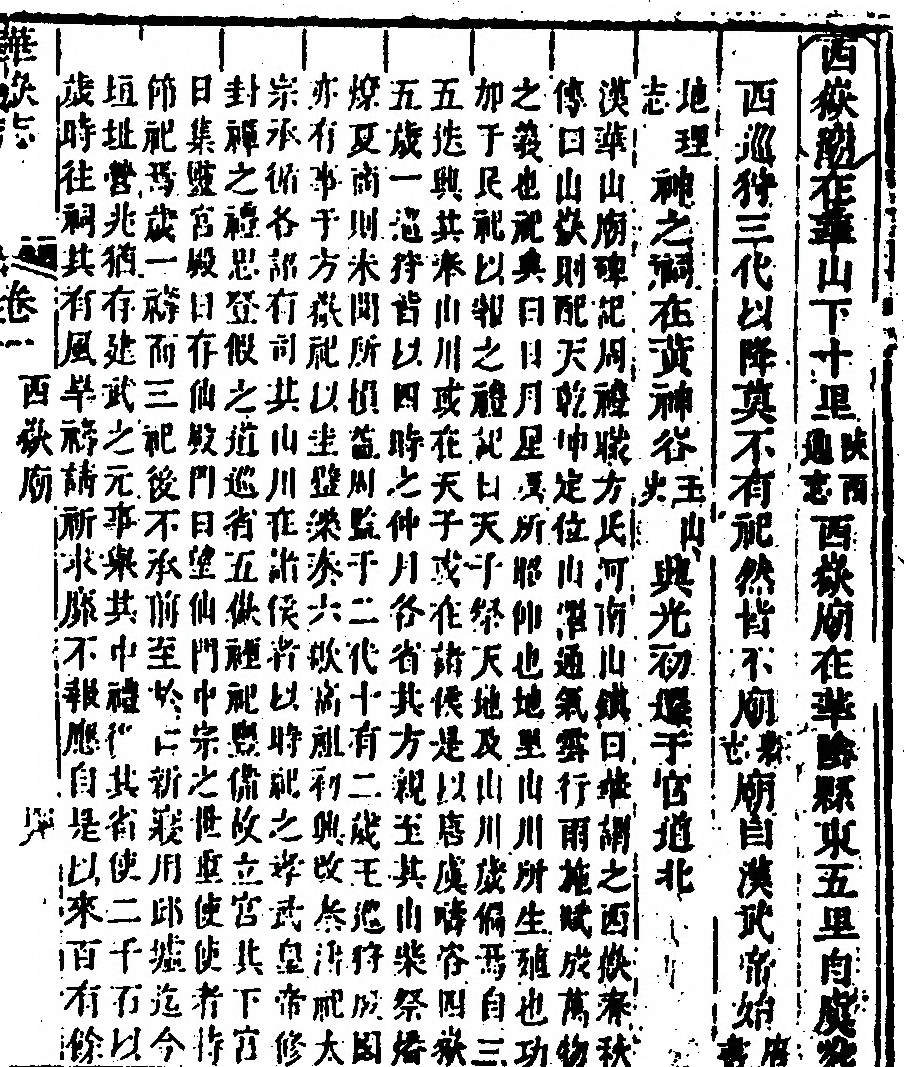 西嶽廟在華山下十里陝西通志西嶽廟在華陰縣東五里自虞
西巡狩三代以降莫不有祀然皆不廟廟自漢武帝始
地理志神之祠在黃神谷王山史與光初遷于官道北
漢華山廟碑記周禮職方氏河南山鎮曰華謂之西嶽春秋
傳曰山嶽則配天乾坤定位山澤通氣雲行雨施旣成萬物
之義也祀典曰日月星辰所昭仰也地理山川所生殖也功
加于民祀以報之禮記曰天子祭天地及山川歲徧焉自三
五迭興其奉山川或在天子或在諸侯是以唐虞疇咨四嶽
五歲一巡狩皆以四時之仲月各省其方親至其山柴祭燔
燎夏商則未聞所損益周監于二代十有二歲王巡狩殷國
亦有事于方嶽祀以圭璧樂奏六歌高祖初興改秦淫祀太
宗承循各詔有司其山川在諸侯者以時祀之孝武皇帝修
封禪之禮思登假之道巡省五嶽禋祀豐備故立宮其下宮
曰集靈宮殿曰存仙殿門曰望仙門中宗之世重使使者持
節祀焉歲一禱而三祀後不承前至於亡新寖用邱墟迄今
垣址營兆猶存建武之元事舉其中禮從其省使二千石以
歲時往祠其有風旱禱請祈求靡不報應自是以來百有餘
華嶽志 卷一 西嶽廟